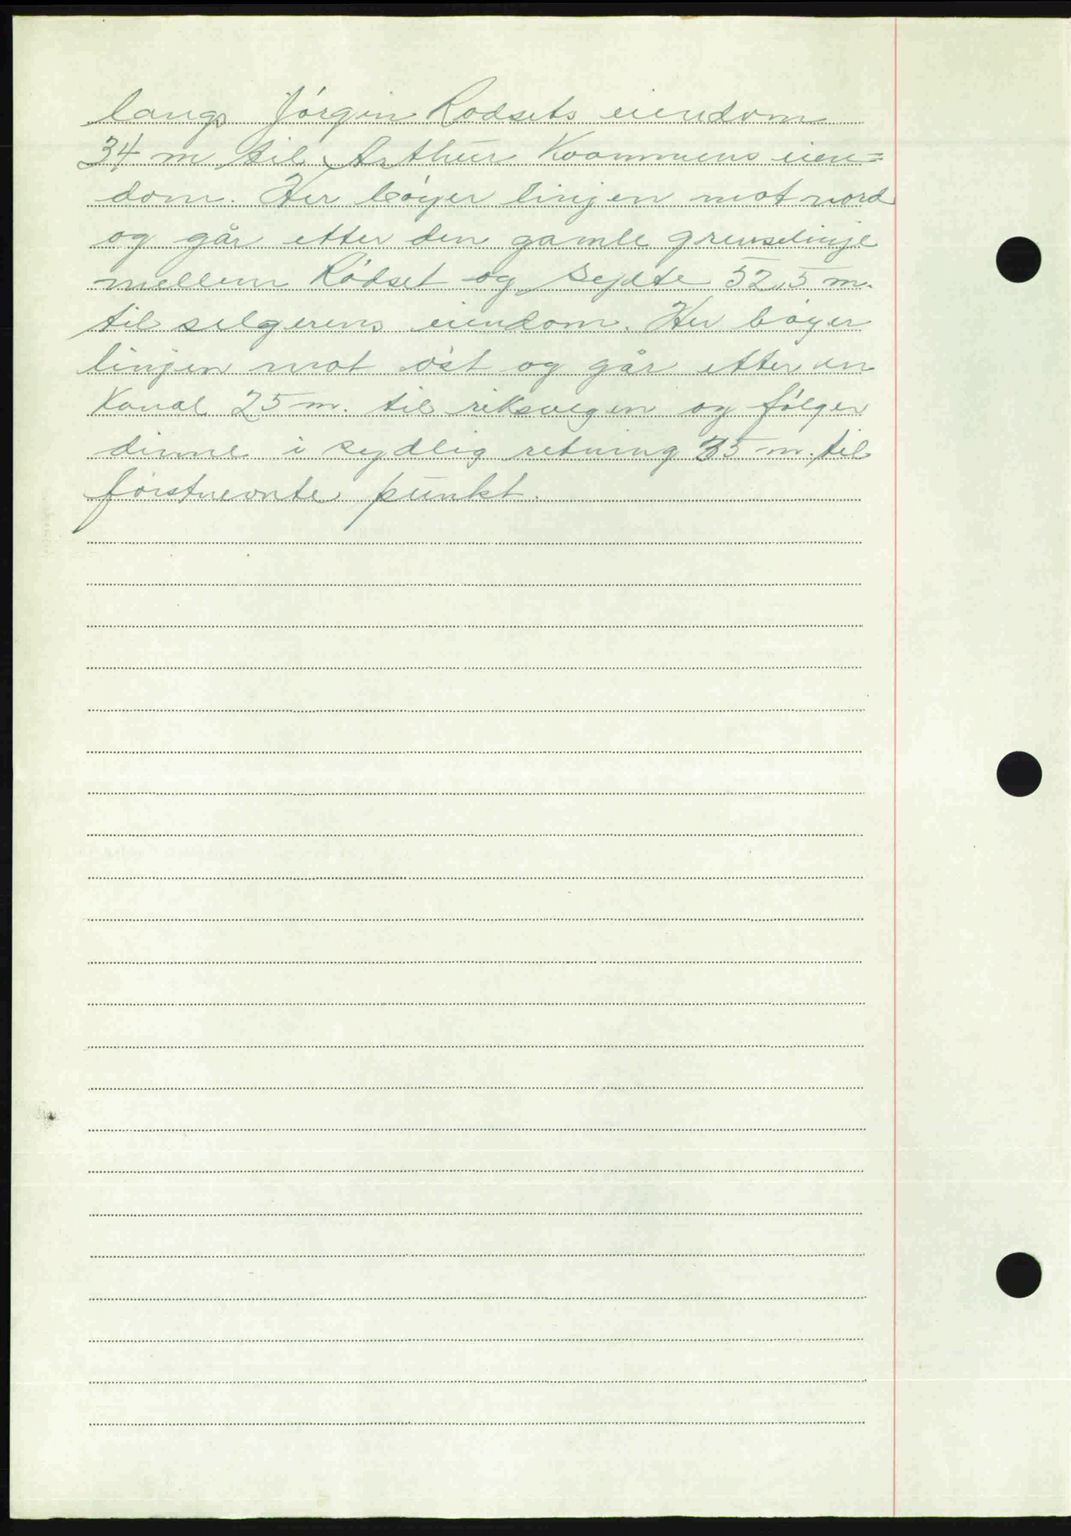 langs Jørgen Rødsets eiendom
34 m til Arthur Kvammens eien=
dom. Her bøyer linjen mot nord
og går etter den gamle grenselinje
mellem Rødset og Sejlte 52,5 m.
til selgerens eiendom. Her bøyer
linjen mot øst og går etter en
Kanal 25 m. til riksvegen og følger
denne i sydlig retning 35 m. til
førstnevnte punkt.